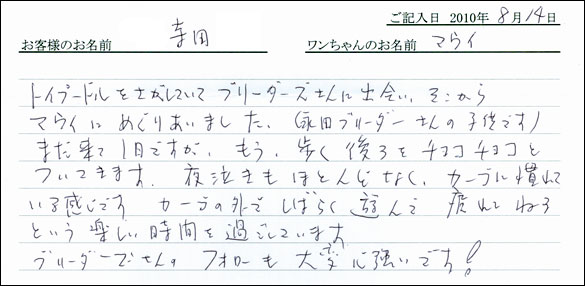 ご記入日 2010年 8月14日
お客様のお名前 寺田 ワンちゃんのお名前 マウイ
トイプードルをさがしていて ブリーダーズさんに出会い、そこから
マウイにめぐりあいました。(永田ブリーダーさんの子供です)
まだ来て1日ですが、もう、歩く後ろをチョコチョコと
ついてきます。夜泣きもほとんどなく、カーゴに慣れて
いる感じです カーゴの外で しばらく 遊んで 疲れて ねる
という 楽しい 時間を 過ごしています
ブリーダーズさんの フォローも 大変心強いです!